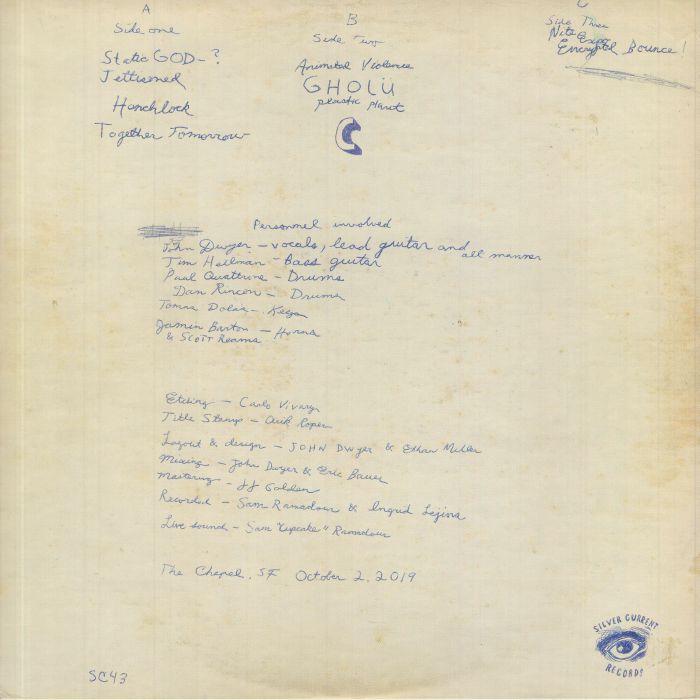 A
Side one
Static GOD - ?
Jettisoned
Henchlock
Together Tomorrow
B
Side Two
Animated Violence
GHOLÜ
plastic plant
C
Side Three
Nite Expo
Encrypted Bounce!
Personnel involved
John Dwyer - vocals, lead guitar and all manner
Tim Hellman - Bass guitar
Paul Quattrone - Drums
Dan Rincon - Drums
Tomas Dolas - Keys
Jamin Barton - Horns
& Scott Reams
Etching - Carlo Vivary
Title Stamp - Arik Roper
Layout & design - JOHN DWyer & Ethan Miller
Mixing - John Dwyer & Eric Bauer
Mastering - JJ Golden
Recorded - Sam Ramadour & Ingrid
Live sound - Sam "Cupcake" Ramadour
The Chapel, SF October 2, 2019
SC43
SILVER CURRENT
RECORDS